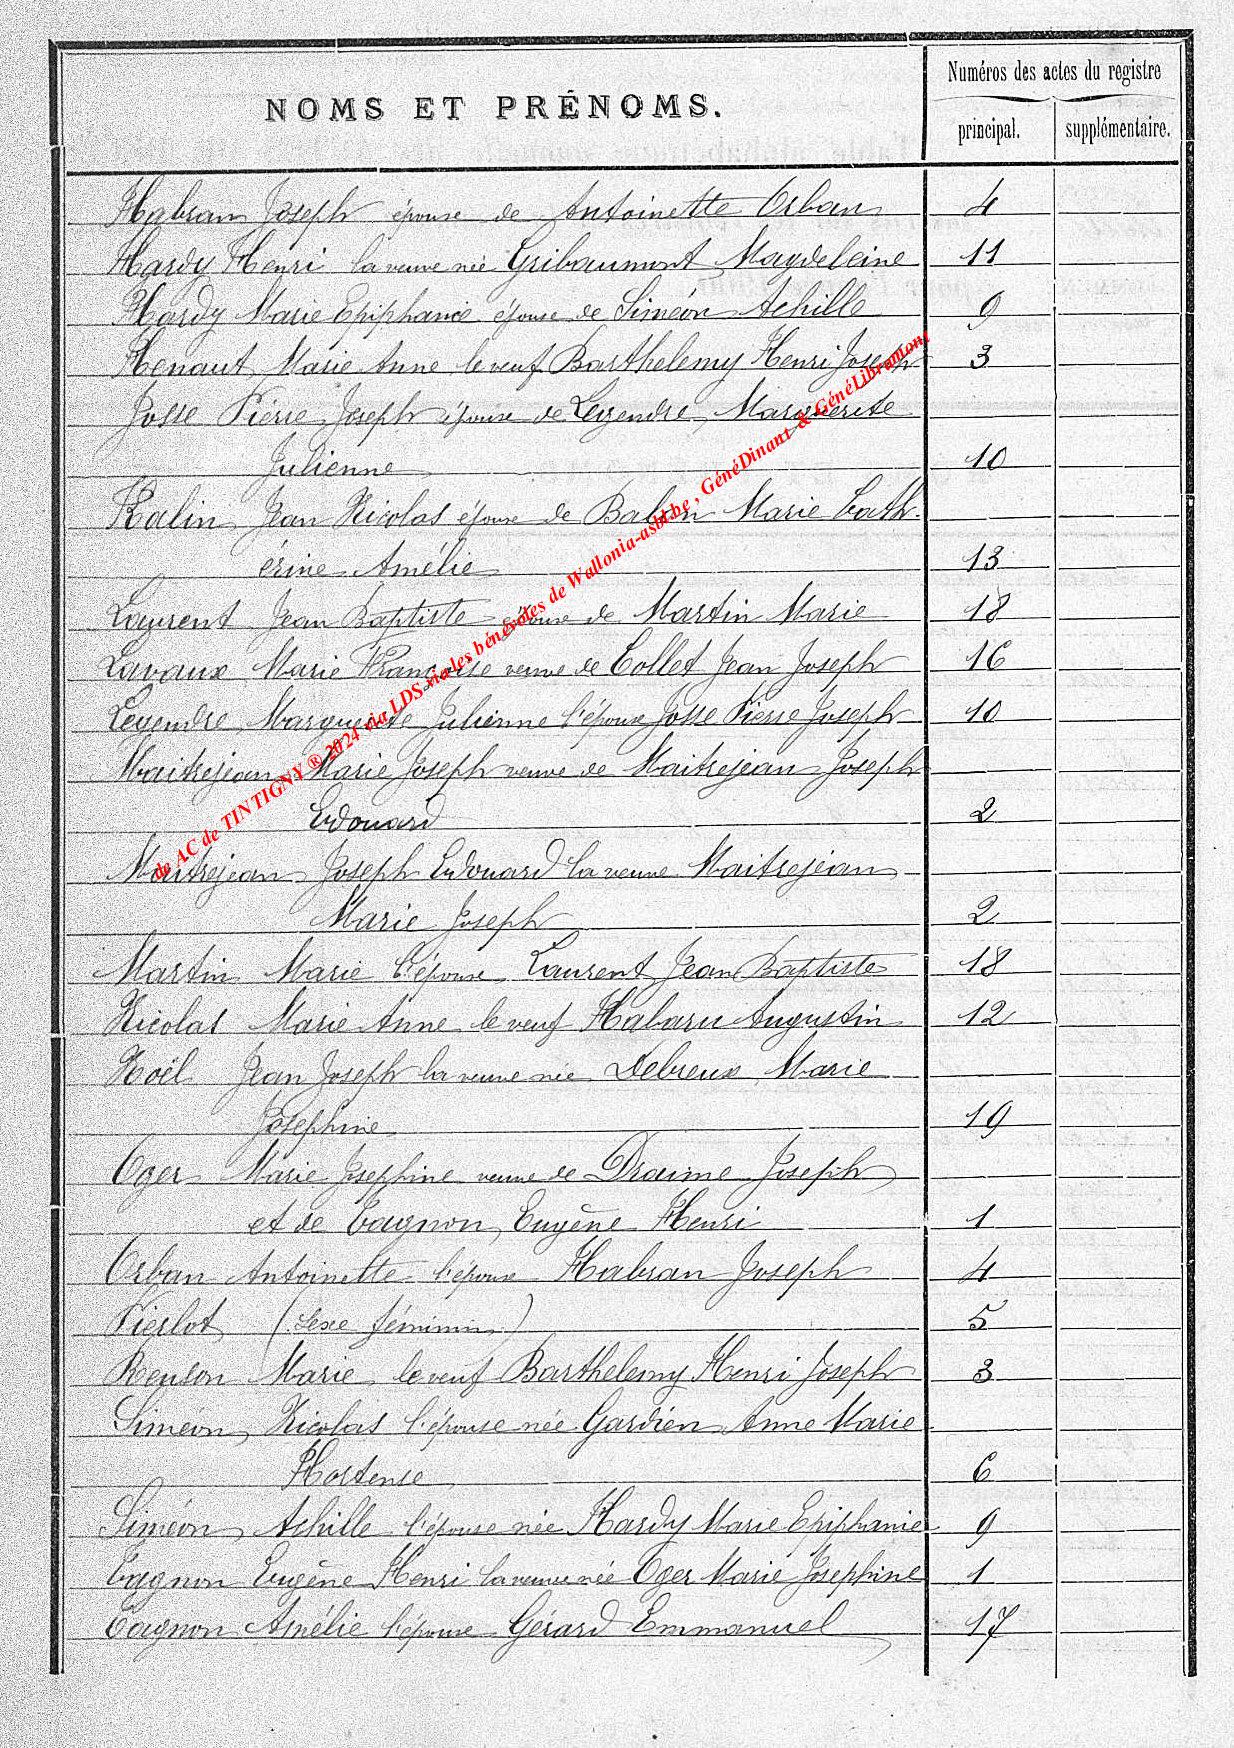 NOMS ET PRÉNOMS.
Numéros des actes du registre
principal. supplémentaire.
Habran Joseph épouse de Antoinette Orban 4
Hardy Henri la veuve née Gribaumont Magdeleine 11
Hardy Marie Epiphanie épouse de Siméon Achille 9
Henaut Marie Anne le veuf Barthelemy Henri Joseph 3
Josse Pierre Joseph épouse de Legendre Marguerite
Julienne 10
Kalin Jean Nicolas épouse de Balon Marie Cath-
érine Amélie 13
Laurent Jean Baptiste épouse de Martin Marie 18
Lavaux Marie Françoise veuve de Collet Jean Joseph 16
Legendre Marguerite Julienne l'époux Josse Pierre Joseph 10
Maitrejean Marie Joseph veuve de Maitrejean Joseph
Edouard 2
Maitrejean Joseph Edouard la veuve Maitrejean
Marie Joseph 2
Martin Marie l'époux Laurent Jean Baptiste 18
Nicolas Marie Anne le veuf Habaru Augustin 12
Noël Jean Joseph la veuve née Debreux Marie
Josephine 19
Oger Marie Josephine veuve de Draime Joseph
et de Tagnon Eugène Henri 1
Orban Antoinette l'époux Habran Joseph 4
Pierlot (sexe féminin) 5
Renson Marie le veuf Barthelemy Henri Joseph 3
Siméon Nicolas l'épouse née Gardien Anne Marie
Hortense 6
Siméon Achille l'épouse née Hardy Marie Epiphanie 9
Tagnon Eugène Henri la veuve née Oger Marie Josephine 1
Tagnon Amélie l'époux Gérard Emmanuel 17
de AC de TINTIGNY ® 2024 via LDS via les bénévoles de Wallonia-asbl.be , GénéDinant & GénéLibramont